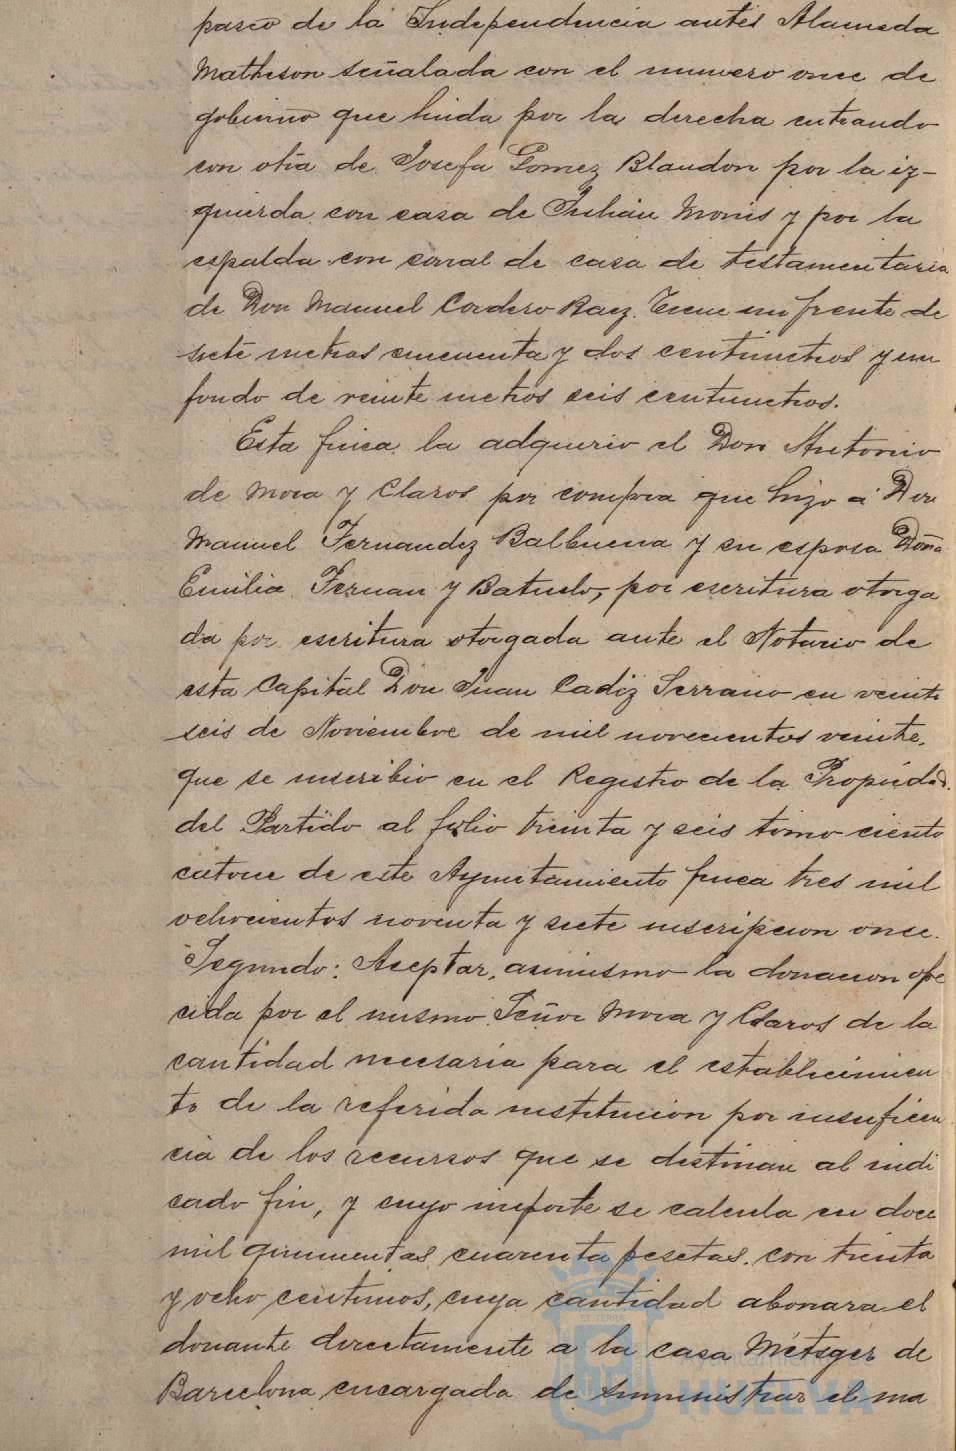 paseo de la Independencia antes Alameda
Matheson señalada con el numero once de
gobierno que linda por la derecha entrando
con otra de Josefa Gomez Blandon por la iz-
quierda con casa de Julián Monis y por la
espalda con corral de casa de testamentaria
de Don Manuel Cordero Baez. Tiene un frente de
siete metros cincuenta y dos centimetros y un
fondo de veinte metros seis centimetros.
Esta finca la adquirio el Don Antonio
de Mora y Claros por compra que hizo a Don
Manuel Fernandez Balbuena y su esposa Doña
Emilia Fernan y Batuelo, por escritura otorga
da por escritura otorgada ante el Notario de
esta Capital Don Juan Cadiz Serrano en veinte
seis de Noviembre de mil novecientos veinte,
que se inscribio en el Registro de la Propiedad.
del Partido al folio treinta y seis tomo ciento
catorce de este Ayuntamiento finca tres mil
ochocientos noventa y siete inscripcion once.
Segundo: Aceptar, asimismo la donacion ofre
cida por el mismo Señor Mora y Claros de la
cantidad necesaria para el establecimien
to de la referida institucion por insuficien
cia de los recursos que se destinan al indi
cado fin, y cuyo importe se calcula en doce
mil quinientas cuarenta pesetas. con treinta
y ocho centimos, cuya cantidad abonara el
donante directamente a la casa Métsger de
Barcelona encargada de suministrar el ma
Ayuntamiento de
HUELVA